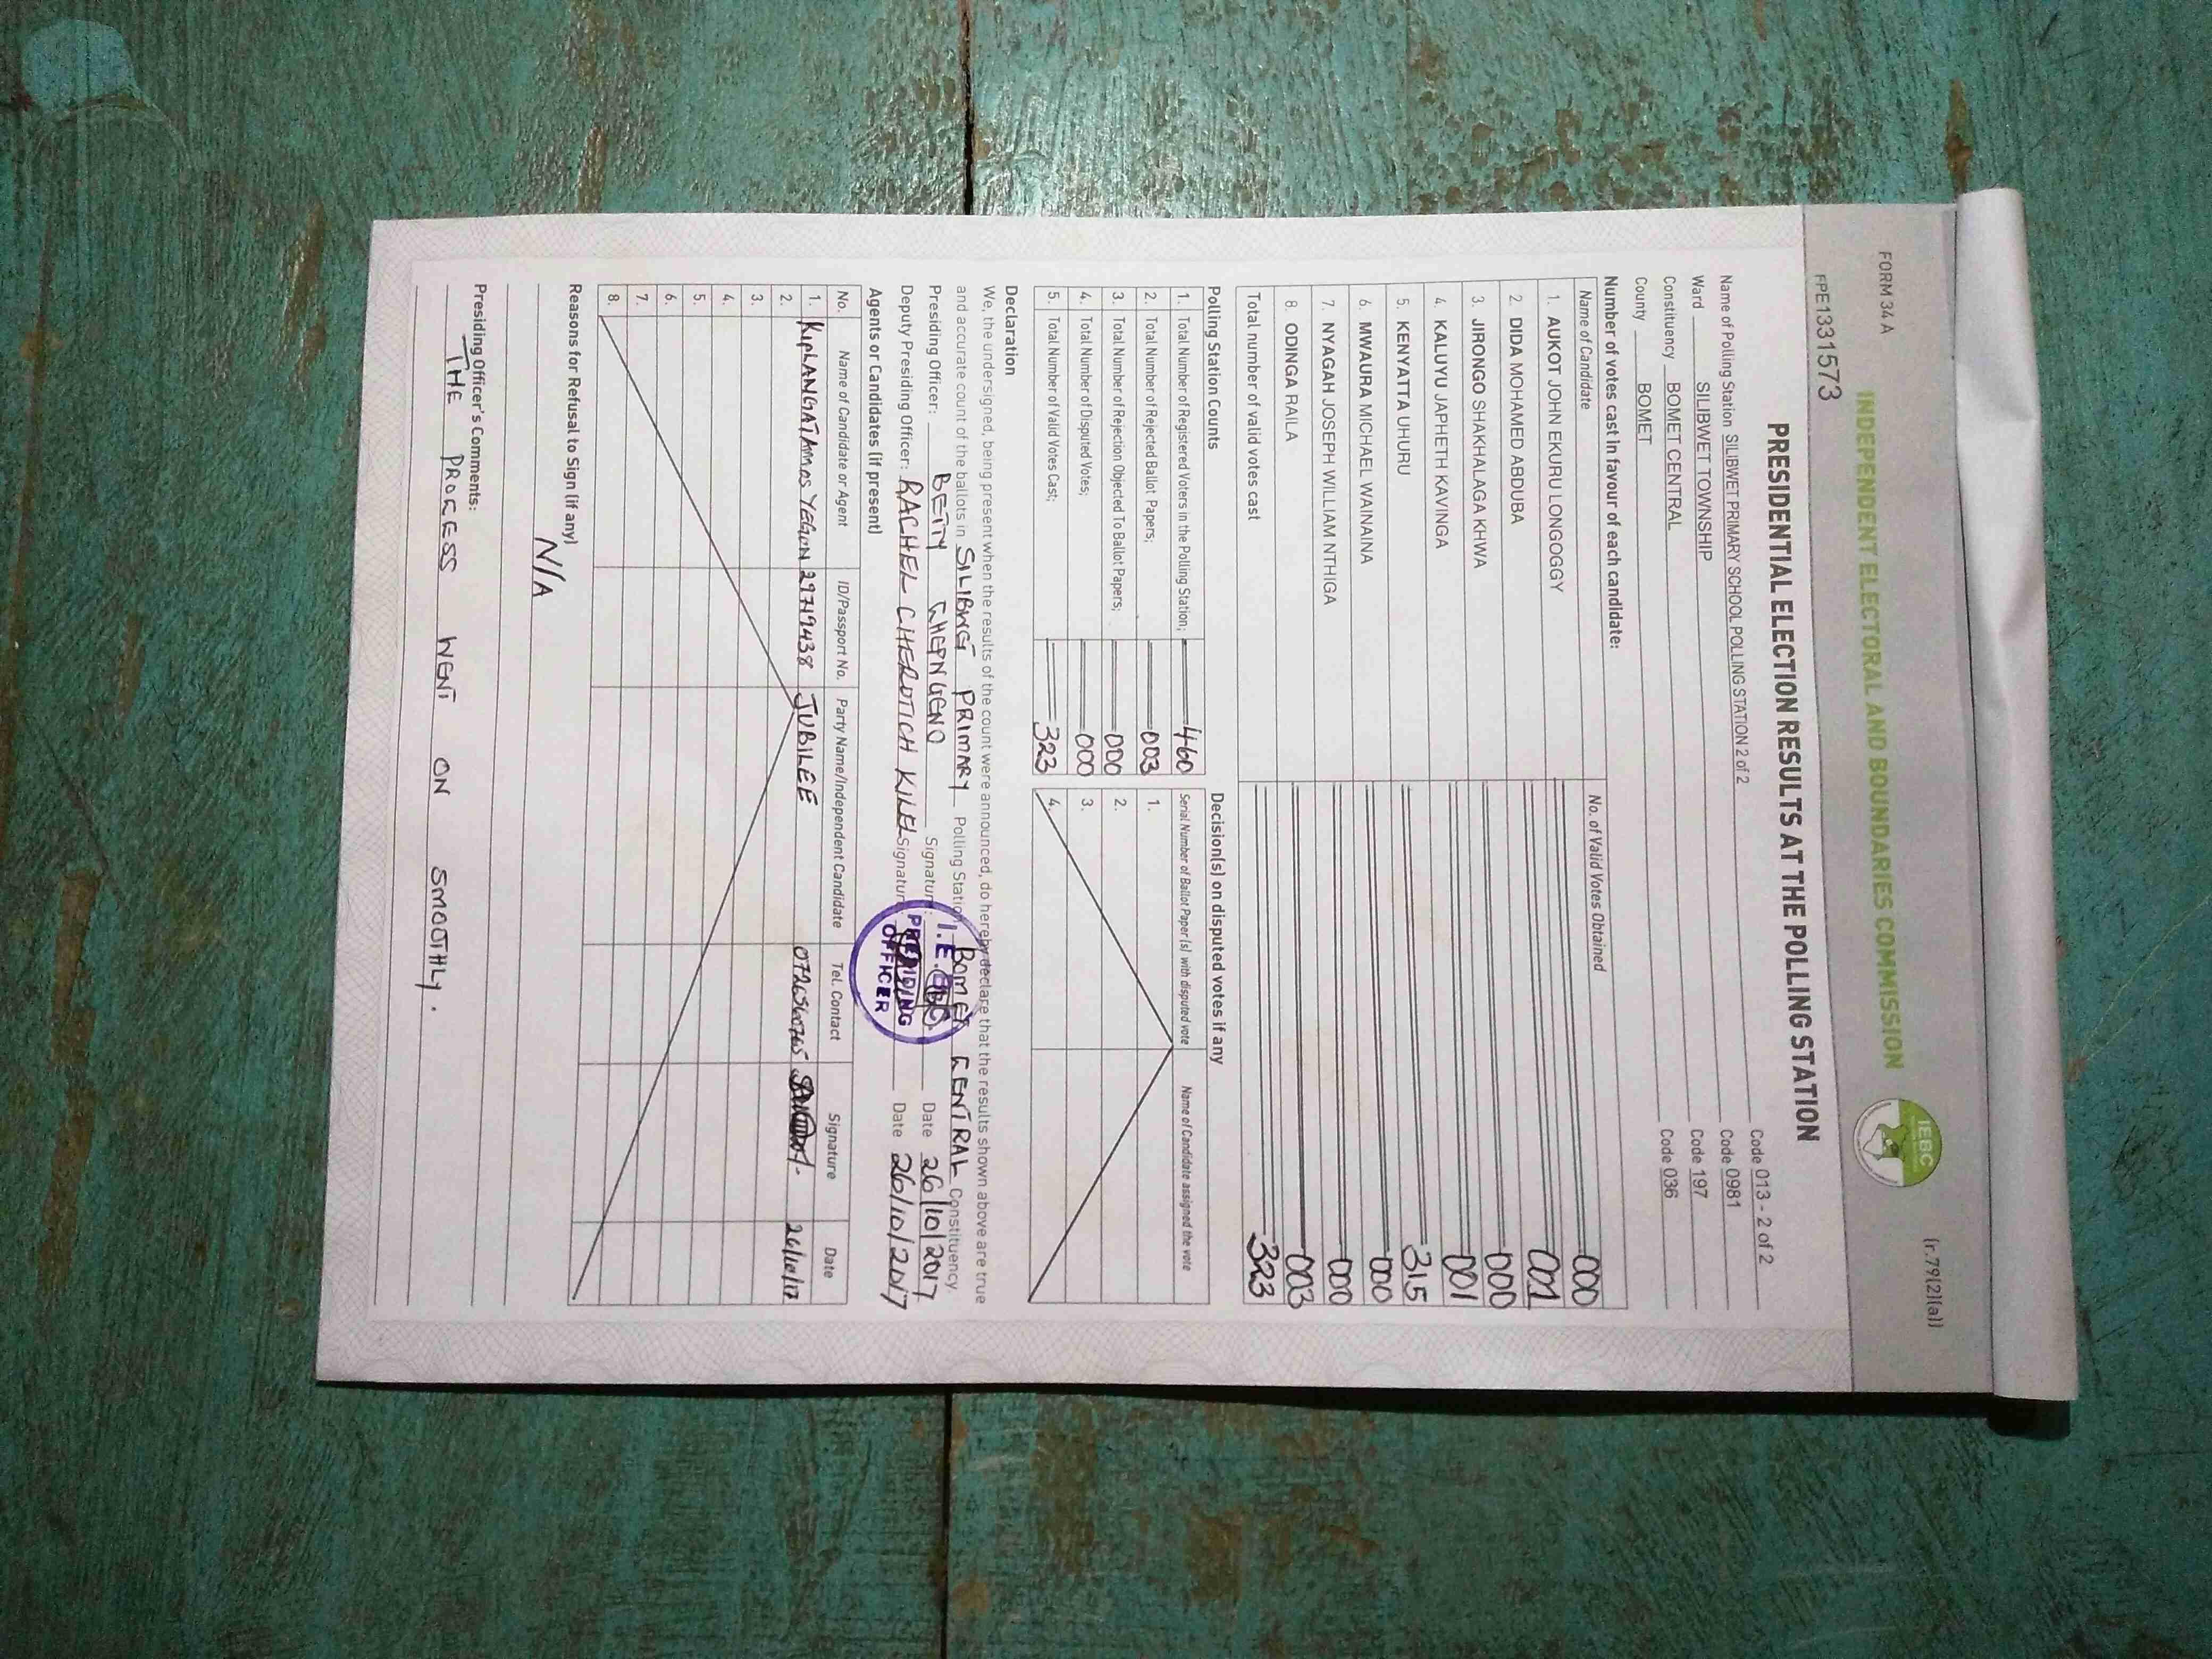 FORM 34 A
(r.79(2)(a))
INDEPENDENT ELECTORAL AND BOUNDARIES COMMISSION
IEBC
PPE1331573
PRESIDENTIAL ELECTION RESULTS AT THE POLLING STATION
Name of Polling Station SILIBWET PRIMARY SCHOOL POLLING STATION 2 of 2 Code 013 - 2 of 2
Ward SILIBWET TOWNSHIP Code 0981
Constituency BOMET CENTRAL Code 197
County BOMET Code 036
Number of votes cast in favour of each candidate:
Name of Candidate No. of Valid Votes Obtained
1. AUKOT JOHN EKURU LONGOGGY 000
2. DIDA MOHAMED ABDUBA 001
3. JIRONGO SHAKHALAGA KHWA 000
4. KALUYU JAPHETH KAVINGA 001
5. KENYATTA UHURU 315
6. MWAURA MICHAEL WAINAINA 000
7. NYAGAH JOSEPH WILLIAM NTHIGA 000
8. ODINGA RAILA 003
Total number of valid votes cast 323
Polling Station Counts
1. Total Number of Registered Voters in the Polling Station; 460
2. Total Number of Rejected Ballot Papers; 003
3. Total Number of Rejection Objected To Ballot Papers; 000
4. Total Number of Disputed Votes; 000
5. Total Number of Valid Votes Cast; 323
Decision(s) on disputed votes if any
Serial Number of Ballot Paper (s) with disputed vote Name of Candidate assigned the vote
1.
2.
3.
4.
Declaration
We, the undersigned, being present when the results of the count were announced, do hereby declare that the results shown above are true
and accurate count of the ballots in SILIBWET PRIMARY Polling Station BOMET CENTRAL Constituency
Presiding Officer: BETTY CHEPNGENO Signature: Date 26/10/2017
Deputy Presiding Officer: RACHEL CHEROTICH Signature Date 26/10/2017
I.E.B.C
PRESIDING
OFFICER
Agents or Candidates (if present)
No. Name of Candidate or Agent ID/Passport No. Party Name/Independent Candidate Tel. Contact Signature Date
1. KIPLANGAT AMOS YEGON 29719438 JUBILEE 26/10/17
2.
3.
4.
5.
6.
7.
8.
Reasons for Refusal to Sign (if any)
N/A
Presiding Officer's Comments:
THE PROCESS WENT ON SMOOTHLY.